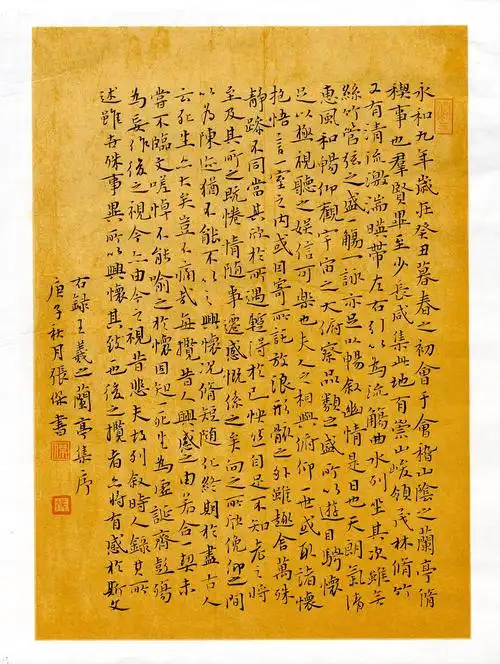 永和九年歲在癸丑暮春之初會于會稽山陰之蘭亭脩
禊事也群賢畢至少長咸集此地有崇山峻領茂林脩竹
又有清流激湍暎帶左右引以為流觴曲水列坐其次雖無
絲竹管弦之盛一觴一詠亦足以暢叙幽情是日也天朗氣清
惠風和暢仰觀宇宙之大俯察品類之盛所以遊目騁懷
足以極視聽之娱信可樂也夫人之相與俯仰一世或取諸懷
抱悟言一室之内或因寄所託放浪形骸之外雖趣舍萬殊
静躁不同當其欣於所遇暫得於己快然自足不知老之將
至及其所之既惓情隨事遷感慨係之矣向之所欣俛仰之間
以為陳迹猶不能不以之興懷況脩短隨化終期於盡古人
云死生亦大矣豈不痛哉每攬昔人興感之由若合一契未
嘗不臨文嗟悼不能喻之於懷固知一死生為虛誕齊彭殤
為妄作後之視今亦由今之視昔悲夫故列叙時人錄其所
述雖世殊事異所以興懷其致也後之攬者亦將有感於斯文
右録王羲之蘭亭集序
庚子秋月張書